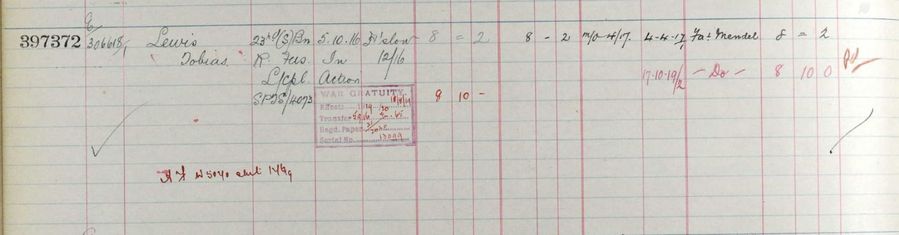 E/
397372 306618/1 Lewis 23rd (S) Bn 5.10.16 H'slow 8 = 2 8 - 2 m/o 4/17. 4-4-17 Fa: Mendel 8 = 2
Tobias. R. Fus. In 12/16
L/Cpl. Action 17-10-19/2 - Do - 8 10 0
SPTS/4073 WAR GRATUITY 8 10 -
Effects
Transfer
Regd. Paper
Serial No.